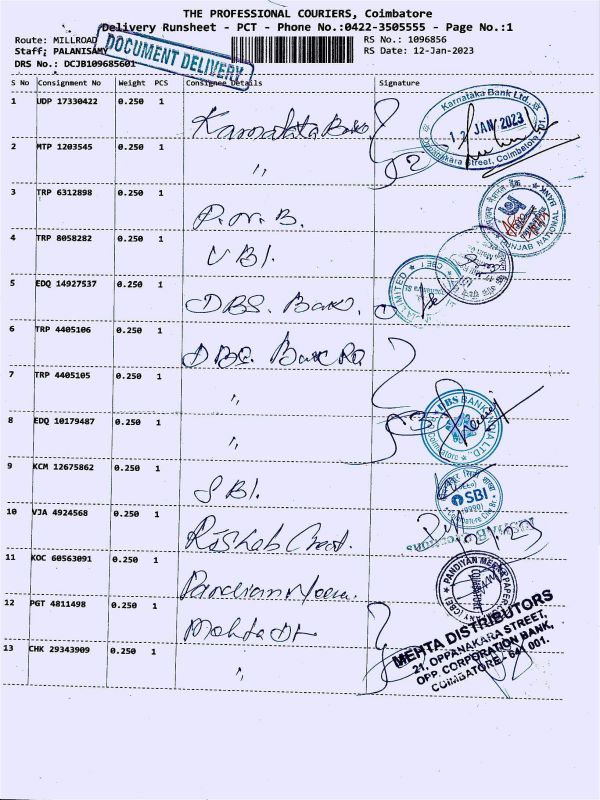 THE PROFESSIONAL COURIERS, Coimbatore
Delivery Runsheet - PCT - Phone No.:0422-3505555 - Page No.:1
Route: MILLROAD
RS No.: 1096856
Staff: PALANISAMY
RS Date: 12-Jan-2023
DRS No.: DCJB109685601
DOCUMENT DELIVERY
S No Consignment No Weight PCS Consignee Details Signature
1 UDP 17330422 0.250 1
Karnataka Bank
Karnataka Bank Ltd.
12 JAN 2023
Street, Coimbatore
2 MTP 1203545 0.250 1 ,,
3 TRP 6312898 0.250 1 P.N.B.
PUNJAB NATIONAL BANK
4 TRP 8058282 0.250 1 UBI.
5 EDQ 14927537 0.250 1 DBS. Bank.
LIMITED
6 TRP 4405106 0.250 1 DBS. Bank
7 TRP 4405105 0.250 1 ,,
8 EDQ 10179487 0.250 1 ,,
BANK
Coimbatore
9 KCM 12675862 0.250 1 SBI.
SBI
10 VJA 4924568 0.250 1 Rishab
11 KOC 60563091 0.250 1 Pandian
PANDIYAN MEERA PAPER
12 PGT 4811498 0.250 1 Mehta
13 CHK 29343909 0.250 1 ,,
MEHTA DISTRIBUTORS
21, OPPANAKARA STREET,
OPP. CORPORATION BANK,
COIMBATORE - 641 001.